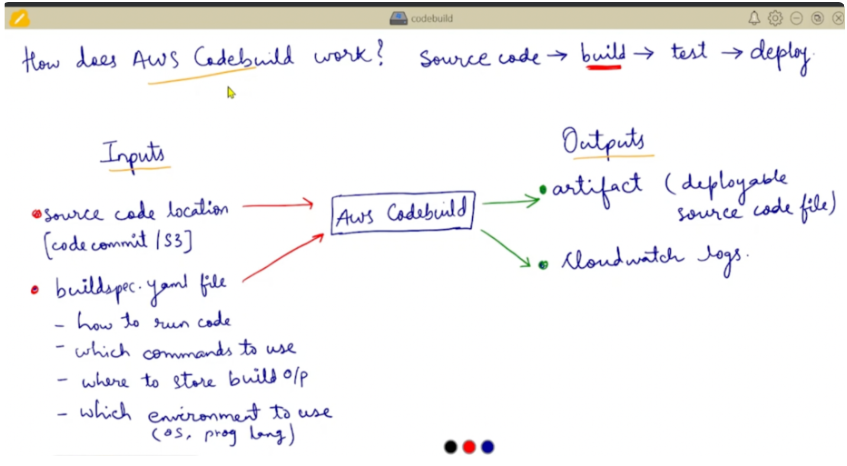 codebuild
How does AWS Codebuild work? Source code → build → test → deploy.
Inputs
• source code location
[code commit / S3]
• buildspec.yaml file
- how to run code
- which commands to use
- where to store build o/p
- which environment to use
(os, prog lang)
AWS Codebuild
Outputs
• artifact (deployable
source code file)
• Cloudwatch logs.